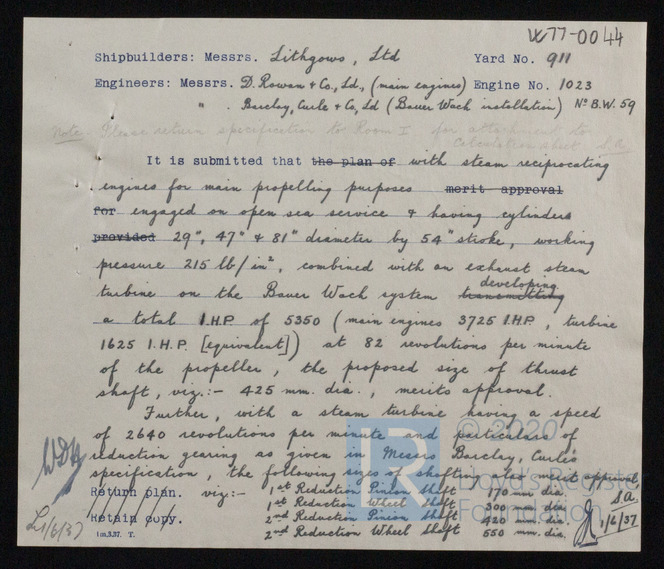 W77-0044
Shipbuilders: Messrs. Lithgows, Ltd Yard No. 911
Engineers: Messrs. D. Rowan & Co., Ld., (main engines) Engine No. 1023
" . Barclay, Curle & Co, Ld (Bauer Wach installation) No B.W. 59
Note. Please return specification to Room I for attachment to
Calculation sheet S.A.
It is submitted that the plan of with steam reciprocating
engines for main propelling purposes merit approval
for engaged on open sea service & having cylinders
provided 29", 47" & 81" diameter by 54" stroke, working
pressure 215 lb/in², combined with an exhaust steam
developing
turbine on the Bauer Wach system transmitting
a total I.H.P. of 5350 (main engines 3725 I.H.P., turbine
1625 I.H.P. [equivalent]) at 82 revolutions per minute
of the propeller, the proposed size of thrust
shaft, viz:- 425 mm. dia., merits approval.
Further, with a steam turbine having a speed
of 2640 revolutions per minute and particulars of
reduction gearing as given in Messrs Barclay, Curle's
specification, the following sizes of shafting also merit approval,
Return plan. viz:- 1st Reduction Pinion Shaft 170 mm dia.
1st Reduction Wheel Shaft 300 mm dia.
Retain copy. 2nd Reduction Pinion Shaft 420 mm dia.
2nd Reduction Wheel Shaft 550 mm. dia.
S.A.
1/6/37
1/6/37
1m,3.37. T.
© 2020
Lloyd's Register
Foundation